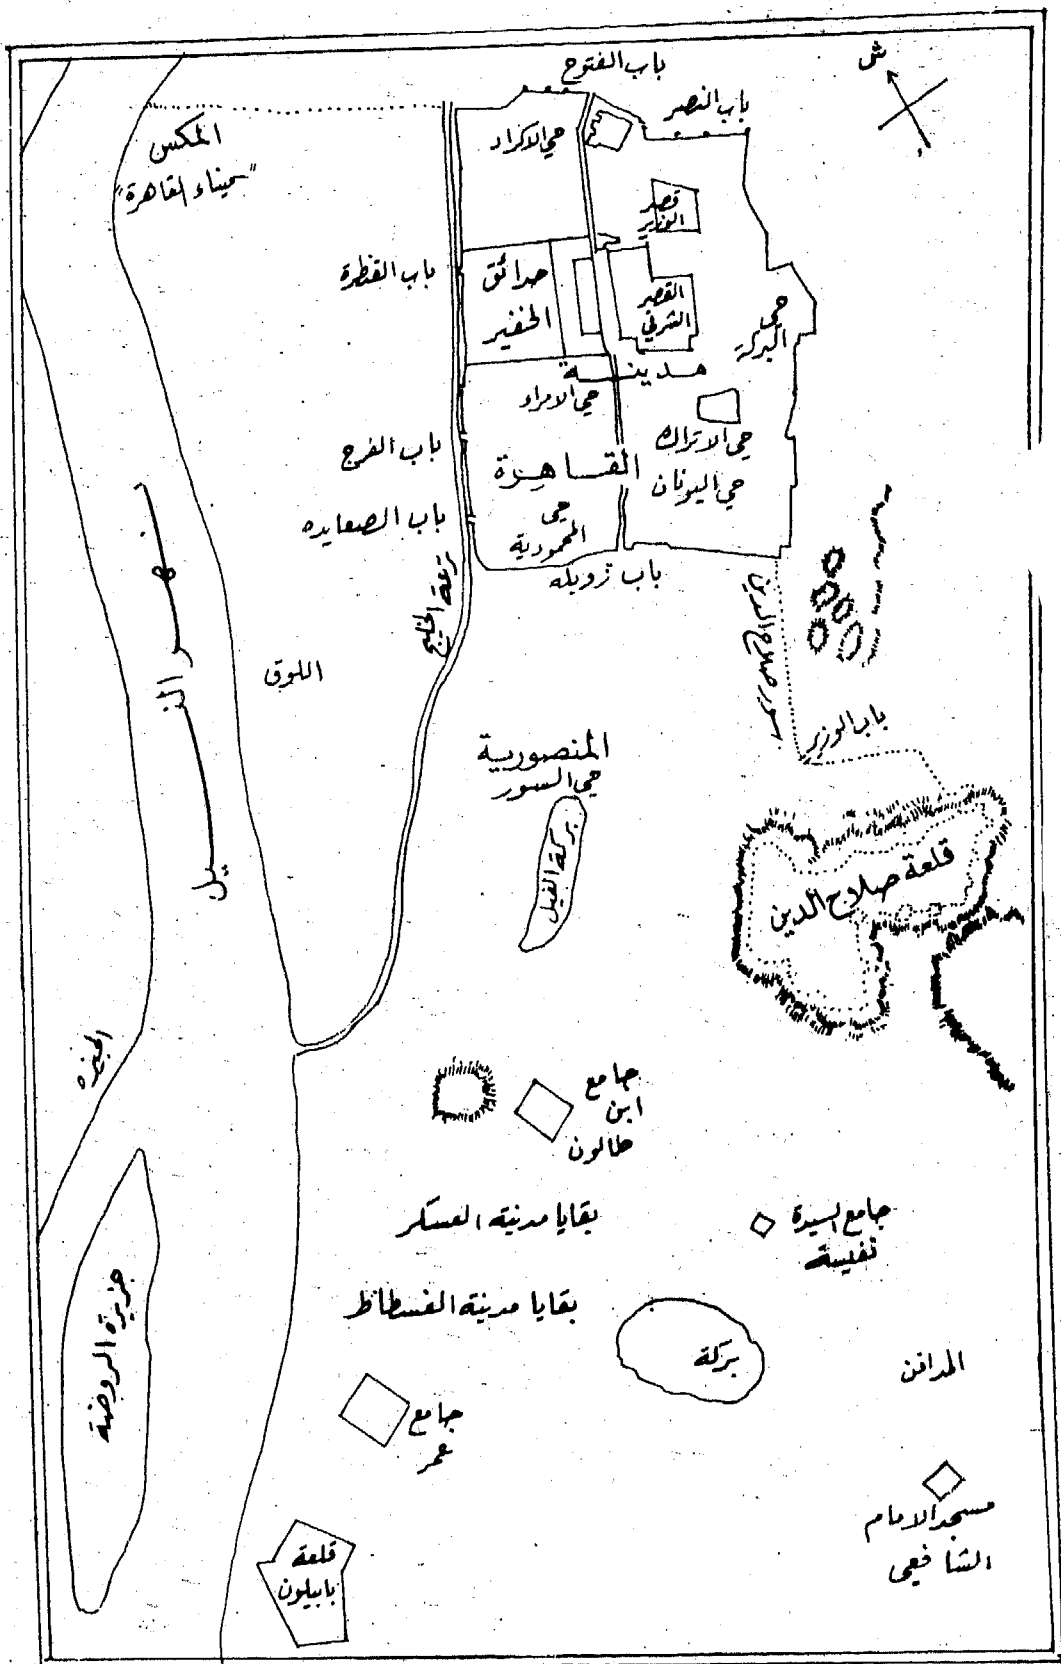 ش
باب الفتوح
باب النصر
المكس
"ميناء القاهرة"
حي الاكراد
قصر
الوزير
باب القنطرة
حدائق
الخفير
القصر
الشرقي
حي
البركة
مدينة
حي الامراء
باب الفرج
القاهرة
حي الاتراك
حي اليونان
باب الصعايده
حي
المحمودية
باب زويله
ترعة الخليج
سور صلاح الدين
نهر النيل
اللوق
باب الوزير
المنصورية
حي السور
بركة الفيل
قلعة صلاح الدين
الجيزه
جامع
ابن
طالون
بقايا مدينة العسكر
جامع السيدة
نفيسة
بقايا مدينة الفسطاط
جزيرة الروضة
بركة
المدافن
جامع
عمر
مسجد الامام
الشافعي
قلعة
بابيلون